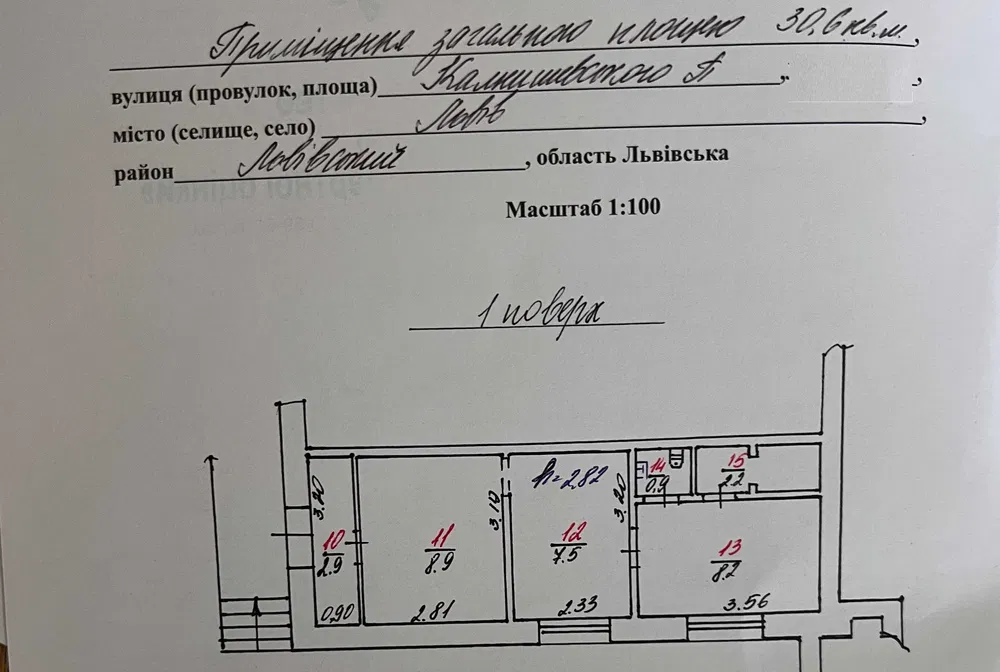 Приміщення загальною площею 30,6 кв.м.,
вулиця (провулок, площа) Калнишевського П ,
місто (селище, село) Львів ,
район Львівський , область Львівська
Масштаб 1:100
1 поверх
h=2.82
14
0,9
15
2.2
3.20
3.10
3.20
10
2.9
11
8.9
12
7.5
13
8.2
0,90
2.81
2.33
3.56